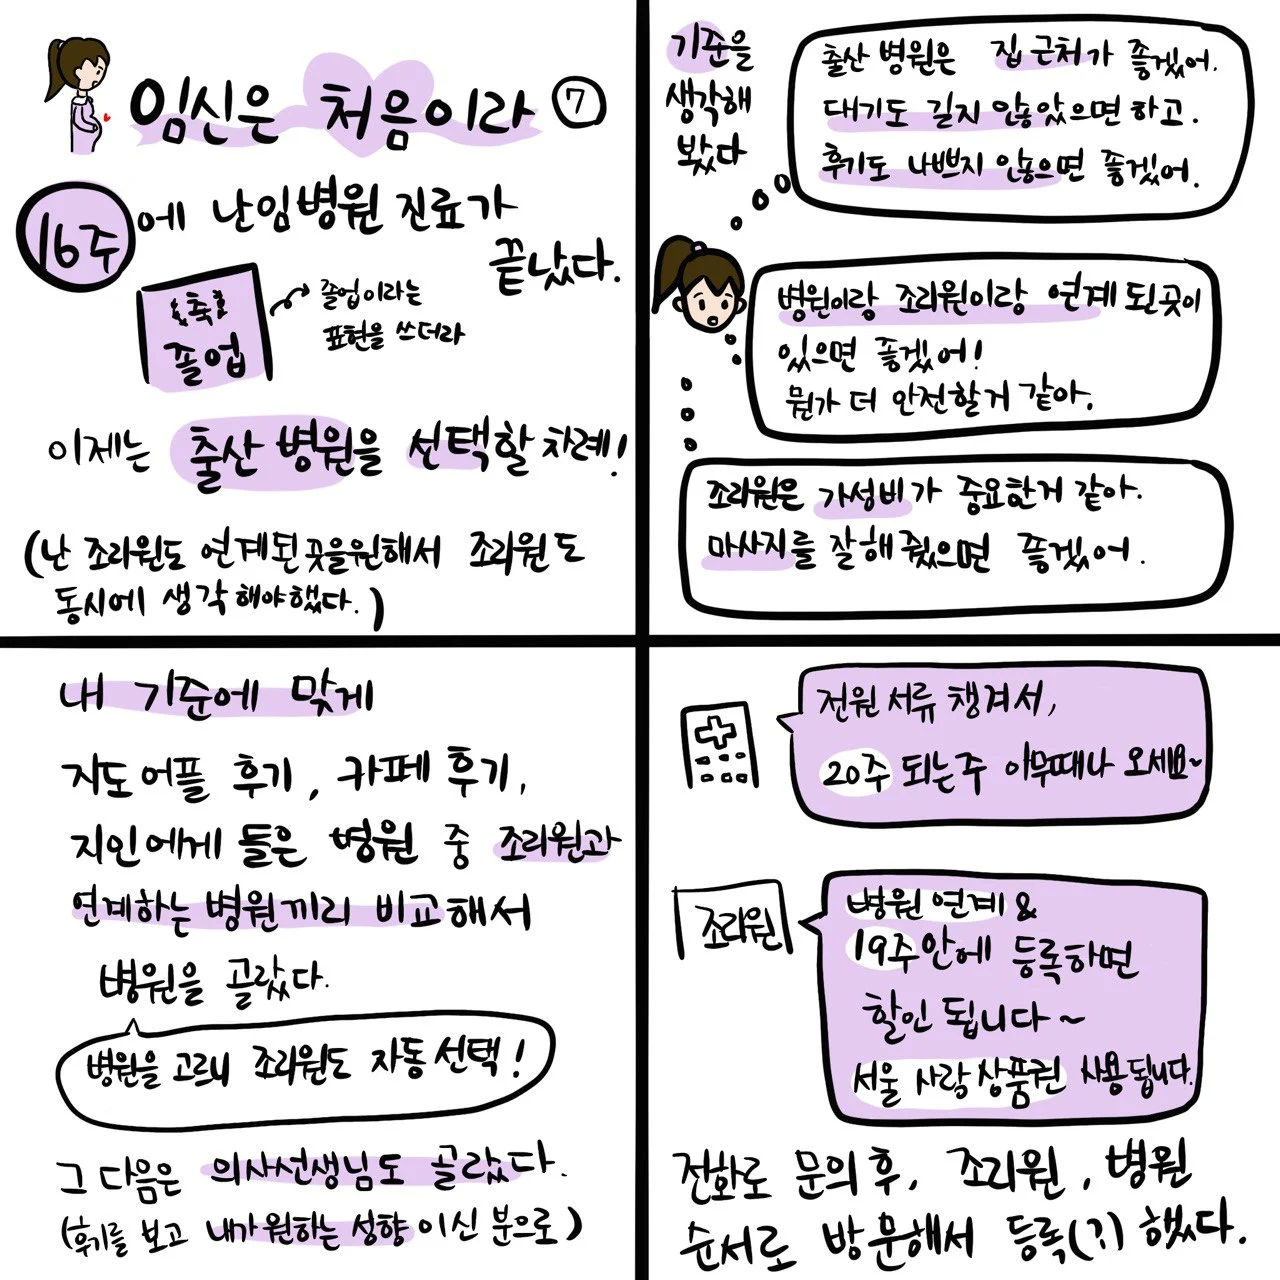 임신은 처음이라 ⑦
16주에 난임병원 진료가
끝났다.
축
졸업
졸업이라는
표현을 쓰더라
이제는 출산 병원을 선택할 차례!
(난 조리원도 연계된곳을원해서 조리원도
동시에 생각해야했다.)
기준을
생각해
봤다
출산 병원은 집 근처가 좋겠어.
대기도 길지 않았으면 하고.
후기도 나쁘지 않으면 좋겠어.
병원이랑 조리원이랑 연계 된곳이
있으면 좋겠어!
뭔가 더 안전할거 같아.
조리원은 가성비가 중요한거 같아.
마사지를 잘해줬으면 좋겠어.
내 기준에 맞게
지도어플 후기, 카페 후기,
지인에게 들은 병원 중 조리원과
연계하는 병원끼리 비교해서
병원을 골랐다.
병원을 고르니 조리원도 자동선택!
그 다음은 의사선생님도 골랐다.
(후기를 보고 내가원하는 성향이신 분으로)
전원 서류 챙겨서,
20주 되는주 아무때나 오세요~
조리원
병원 연계 &
19주안에 등록하면
할인 됩니다~
서울 사랑상품권 사용됩니다.
전화로 문의 후, 조리원, 병원
순서로 방문해서 등록(?)했다.